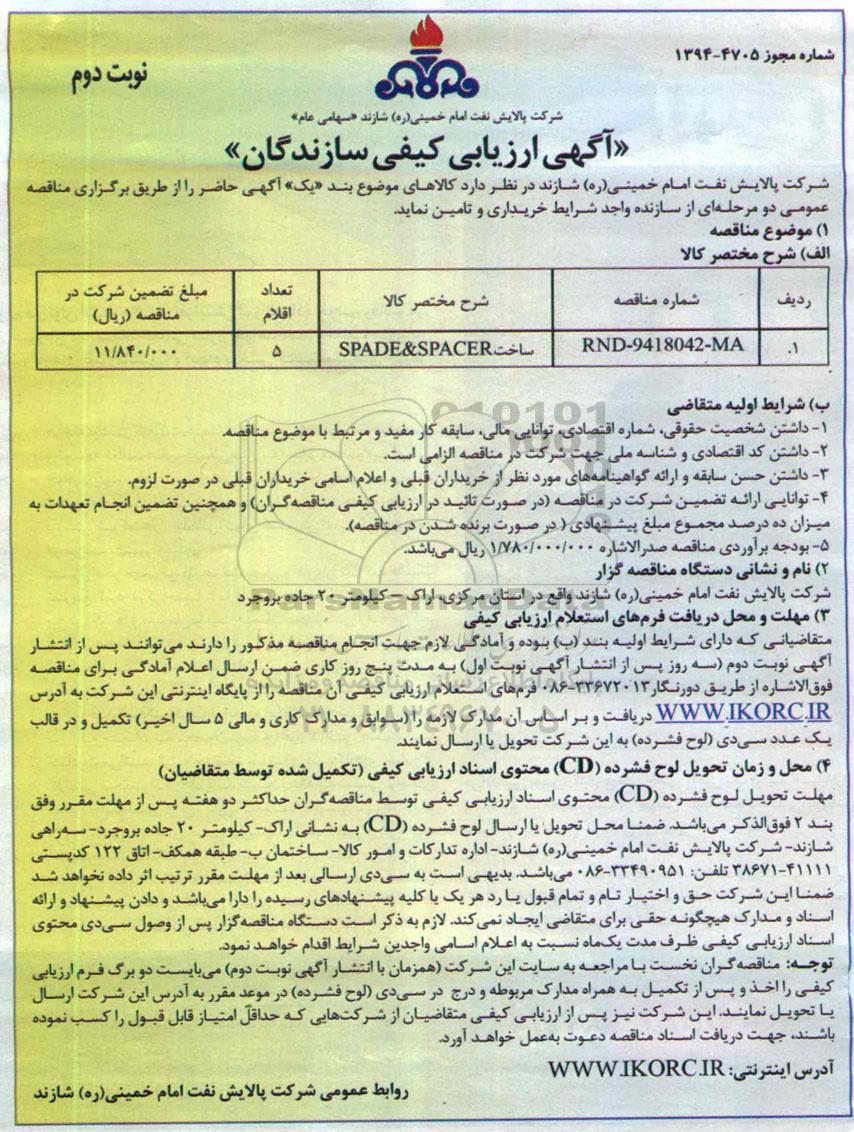 شماره مجوز ۴۷۰۵-۱۳۹۴
نوبت دوم
شرکت پالایش نفت امام خمینی(ره) شازند «سهامی عام»
«آگهی ارزیابی کیفی سازندگان»
شرکت پالایش نفت امام خمینی(ره) شازند در نظر دارد کالاهای موضوع بند «یک» آگهی حاضر را از طریق برگزاری مناقصه
عمومی دو مرحله‌ای از سازنده واجد شرایط خریداری و تامین نماید.
۱) موضوع مناقصه
الف) شرح مختصر کالا
ردیف | شماره مناقصه | شرح مختصر کالا | تعداد اقلام | مبلغ تضمین شرکت در مناقصه (ریال)
۱. | RND-9418042-MA | ساخت SPADE&SPACER | ۵ | ۱۱/۸۴۰/۰۰۰
ب) شرایط اولیه متقاضی
۱- داشتن شخصیت حقوقی، شماره اقتصادی، توانایی مالی، سابقه کار مفید و مرتبط با موضوع مناقصه.
۲- داشتن کد اقتصادی و شناسه ملی جهت شرکت در مناقصه الزامی است.
۳- داشتن حسن سابقه و ارائه گواهینامه‌های مورد نظر از خریداران قبلی و اعلام اسامی خریداران قبلی در صورت لزوم.
۴- توانایی ارائه تضمین شرکت در مناقصه (در صورت تائید در ارزیابی کیفی مناقصه‌گران) و همچنین تضمین انجام تعهدات به
میزان ده درصد مجموع مبلغ پیشنهادی ( در صورت برنده شدن در مناقصه).
۵- بودجه برآوردی مناقصه صدرالاشاره ۱/۷۸۰/۰۰۰/۰۰۰ ریال می‌باشد.
۲) نام و نشانی دستگاه مناقصه گزار
شرکت پالایش نفت امام خمینی(ره) شازند واقع در استان مرکزی، اراک – کیلومتر ۲۰ جاده بروجرد
۳) مهلت و محل دریافت فرم‌های استعلام ارزیابی کیفی
متقاضیانی که دارای شرایط اولیه بند (ب) بوده و آمادگی لازم جهت انجام مناقصه مذکور را دارند می‌توانند پس از انتشار
آگهی نوبت دوم (سه روز پس از انتشار آگهی نوبت اول) به مدت پنج روز کاری ضمن ارسال اعلام آمادگی برای مناقصه
فوق‌الاشاره از طریق دورنگار ۳۳۶۷۲۰۱۲-۰۸۶ فرم‌های استعلام ارزیابی کیفی آن مناقصه را از پایگاه اینترنتی این شرکت به آدرس
WWW.IKORC.IR دریافت و بر اساس آن مدارک لازمه را (سوابق و مدارک کاری و مالی ۵ سال اخیر) تکمیل و در قالب
یک عدد سی‌دی (لوح فشرده) به این شرکت تحویل یا ارسال نمایند.
۴) محل و زمان تحویل لوح فشرده (CD) محتوی اسناد ارزیابی کیفی (تکمیل شده توسط متقاضیان)
مهلت تحویل لوح فشرده (CD) محتوی اسناد ارزیابی کیفی توسط مناقصه‌گران حداکثر دو هفته پس از مهلت مقرر وفق
بند ۲ فوق‌الذکر می‌باشد. ضمنا محل تحویل یا ارسال لوح فشرده (CD) به نشانی اراک- کیلومتر ۲۰ جاده بروجرد- سه‌راهی
شازند- شرکت پالایش نفت امام خمینی(ره) شازند- اداره تدارکات و امور کالا- ساختمان ب- طبقه همکف- اتاق ۱۲۲ کدپستی
۳۸۶۷۱-۴۱۱۱۱ تلفن: ۳۳۴۹۰۹۵۱-۰۸۶ می‌باشد. بدیهی است به سی‌دی ارسالی بعد از مهلت مقرر ترتیب اثر داده نخواهد شد
ضمنا این شرکت حق و اختیار تام و تمام قبول یا رد هر یک یا کلیه پیشنهادهای رسیده را دارا می‌باشد و دادن پیشنهاد و ارائه
اسناد و مدارک هیچگونه حقی برای متقاضی ایجاد نمی‌کند. لازم به ذکر است دستگاه مناقصه‌گزار پس از وصول سی‌دی محتوی
اسناد ارزیابی کیفی ظرف مدت یک‌ماه نسبت به اعلام اسامی واجدین شرایط اقدام خواهد نمود.
توجه: مناقصه‌گران نخست با مراجعه به سایت این شرکت (همزمان با انتشار آگهی نوبت دوم) می‌بایست دو برگ فرم ارزیابی
کیفی را اخذ و پس از تکمیل به همراه مدارک مربوطه و درج در سی‌دی (لوح فشرده) در موعد مقرر به آدرس این شرکت ارسال
یا تحویل نمایند. این شرکت نیز پس از ارزیابی کیفی متقاضیان از شرکت‌هایی که حداقل امتیاز قابل قبول را کسب نموده
باشند، جهت دریافت اسناد مناقصه دعوت به‌عمل خواهد آورد.
آدرس اینترنتی: WWW.IKORC.IR
روابط عمومی شرکت پالایش نفت امام خمینی(ره) شازند